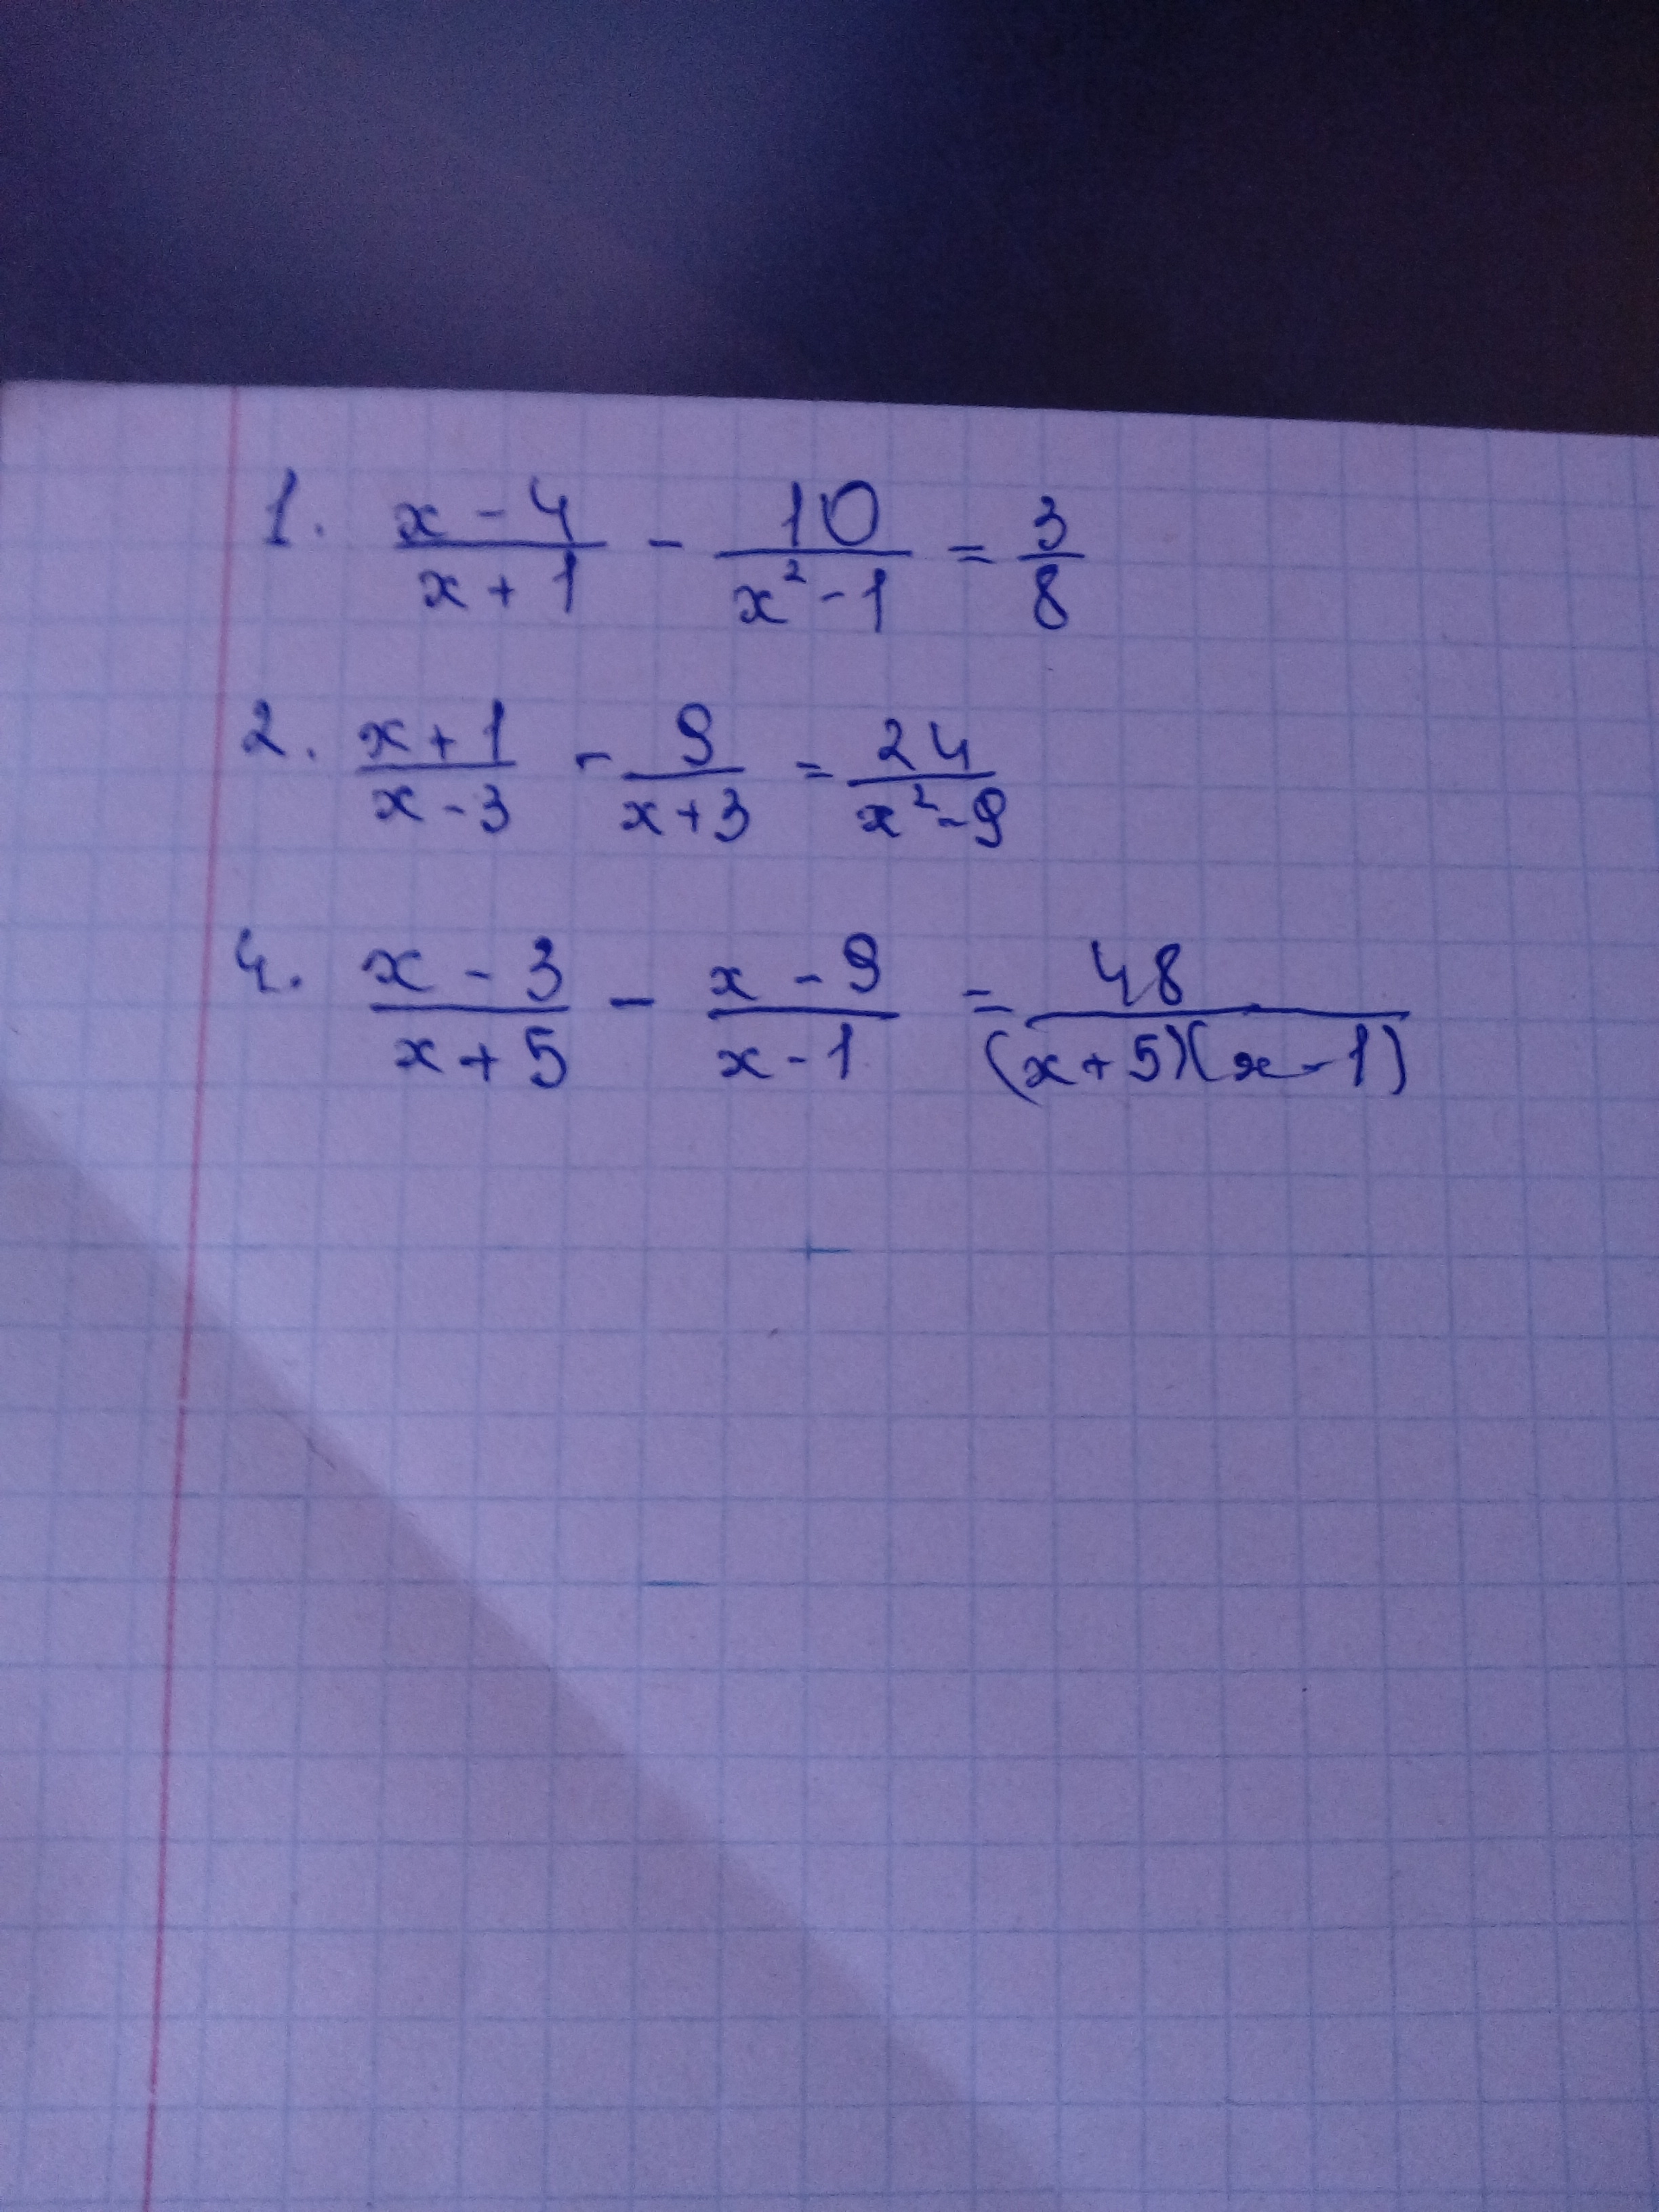 1. (x-4)/(x+1) - 10/(x²-1) = 3/8
2. (x+1)/(x-3) - 9/(x+3) = 24/(x²-9)
4. (x-3)/(x+5) - (x-9)/(x-1) = 48/((x+5)(x-1))